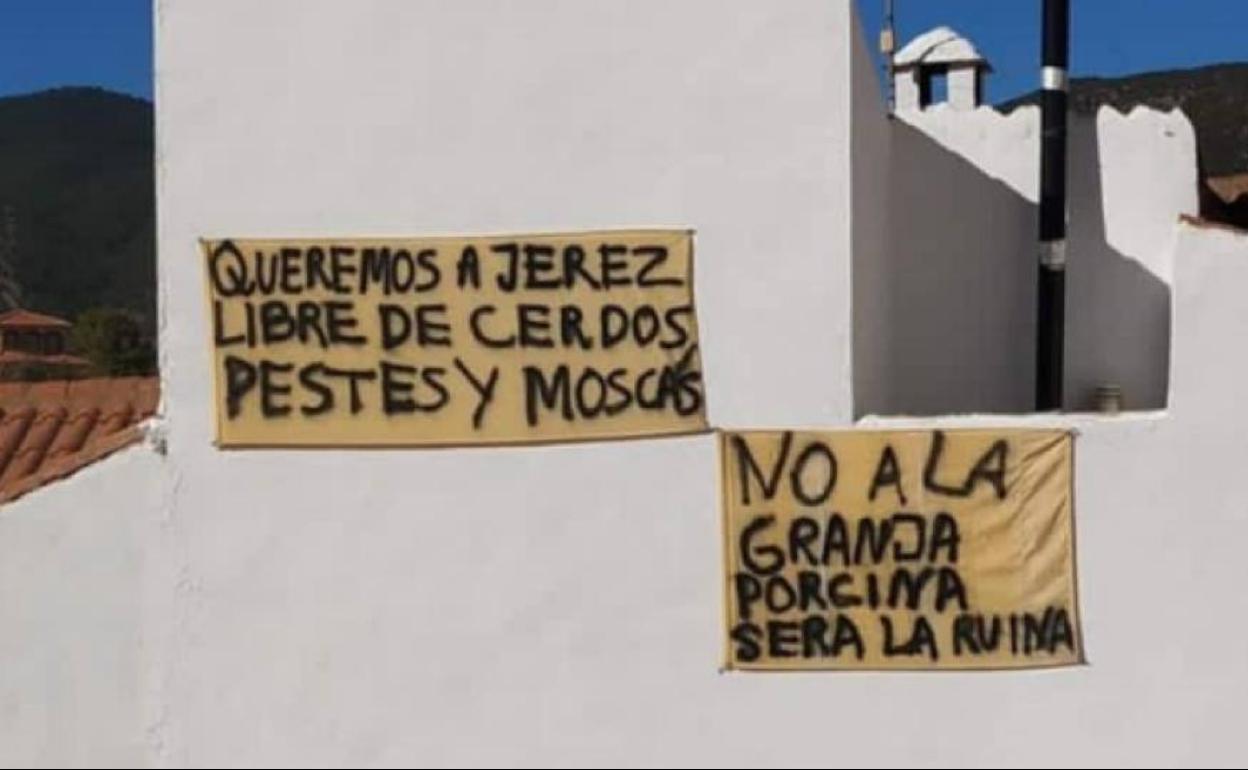 QUEREMOS A JEREZ
LIBRE DE CERDOS,
PESTES Y MOSCAS
NO A LA
GRANJA
PORCINA
SERA LA RUINA